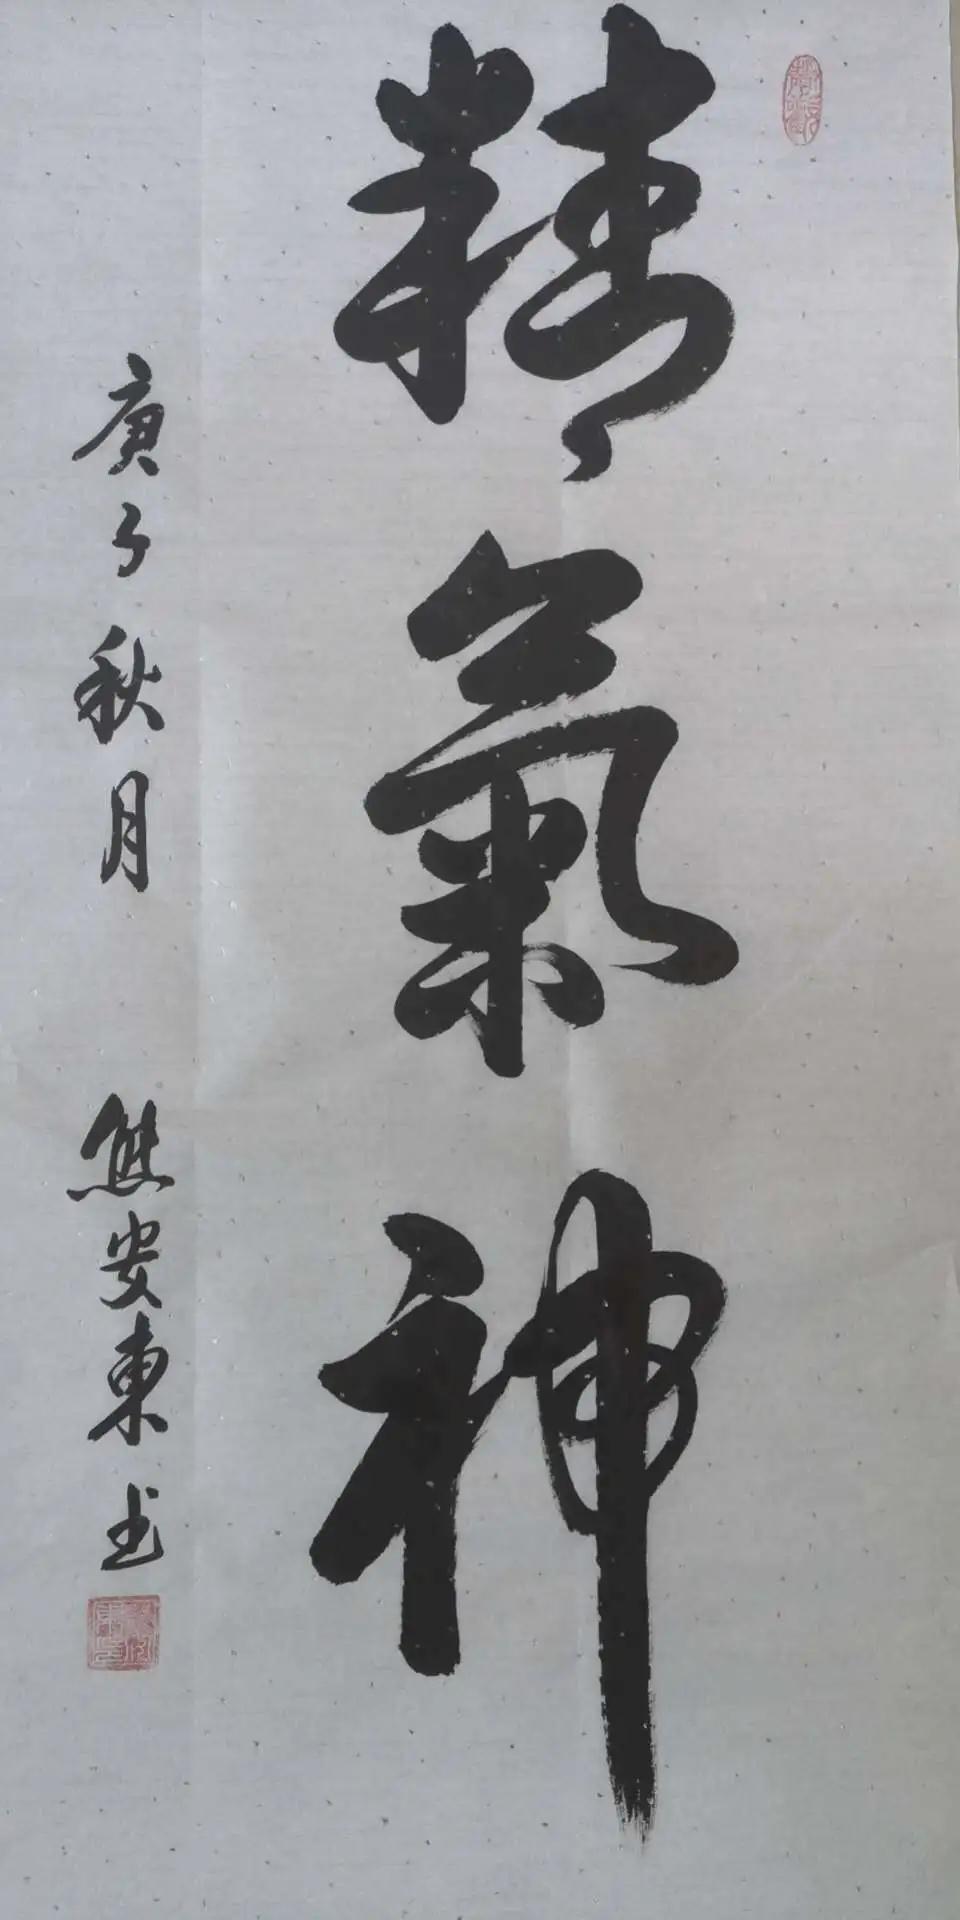 精氣神
庚子秋月 熊安東书